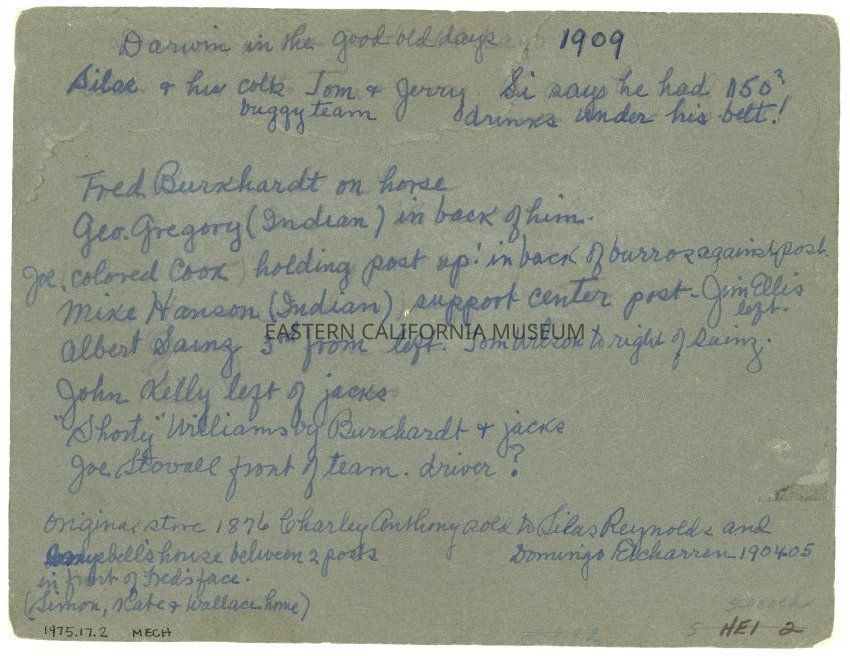 Darwin in the good old days 1909
Silas & his colts Tom & Jerry. Si says he had 150?
buggy team drinks under his belt!
Fred Burkhardt on horse
Geo. Gregory (Indian) in back of him.
Joe, (colored Cook) holding post up! in back of burros against post.
Mike Hanson (Indian) support center post - Jim Ellis
left.
EASTERN CALIFORNIA MUSEUM
Albert Sainz 3rd from left. Tom Wilson to right of Sainz.
John Kelly left of jacks
"Shorty" Williams by Burkhardt & jacks
Joe Stovall front of team. driver?
Original store 1876 Charley Anthony sold to Silas Reynolds and
Campbell's house between 2 posts Domingo Etcharren 1904 05
in front of Fred's face.
(Simon, Kate & Wallace home)
1975.17.2 MECH HEI 2